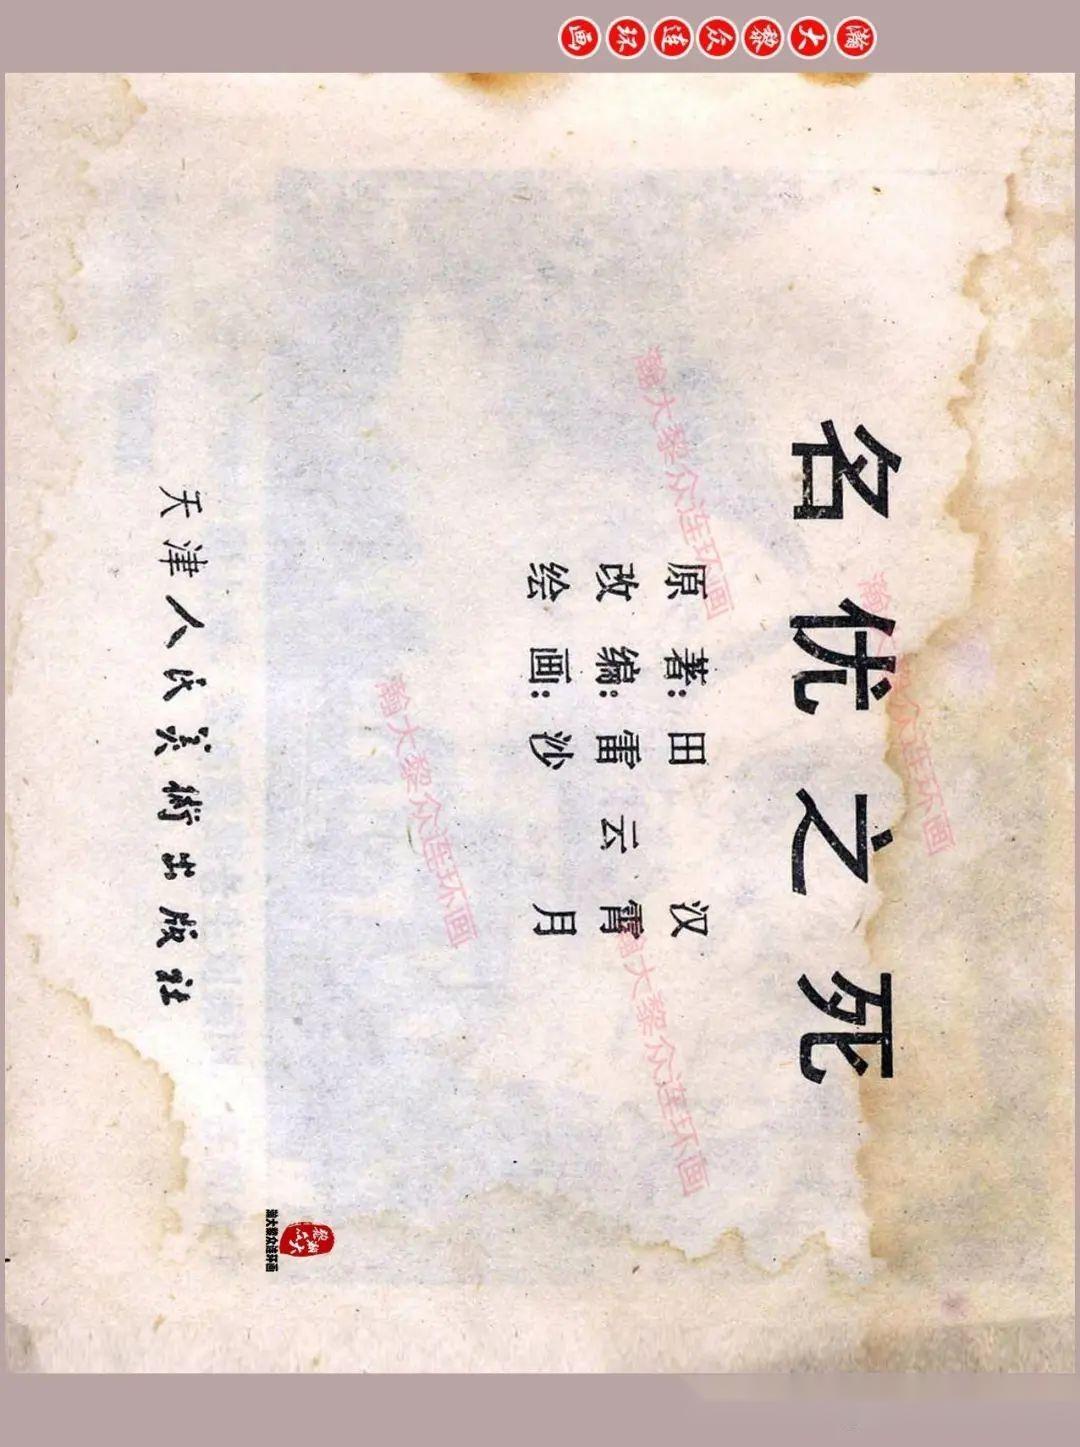 名优之死
原著：田汉
改编：雷云霄
绘画：沙月
天津人民美術出版社
瀚大黎众连环画
瀚大黎众连环画
瀚大黎众连环画
瀚大黎众连环画
瀚大黎众连环画
瀚大黎众连环画